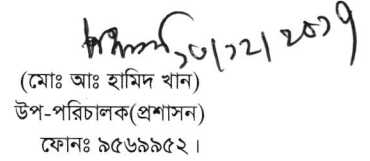 ১০/১২/২০১৭
(মোঃ আঃ হামিদ খান)
উপ-পরিচালক(প্রশাসন)
ফোনঃ ৯৫৬৯৯৫২।